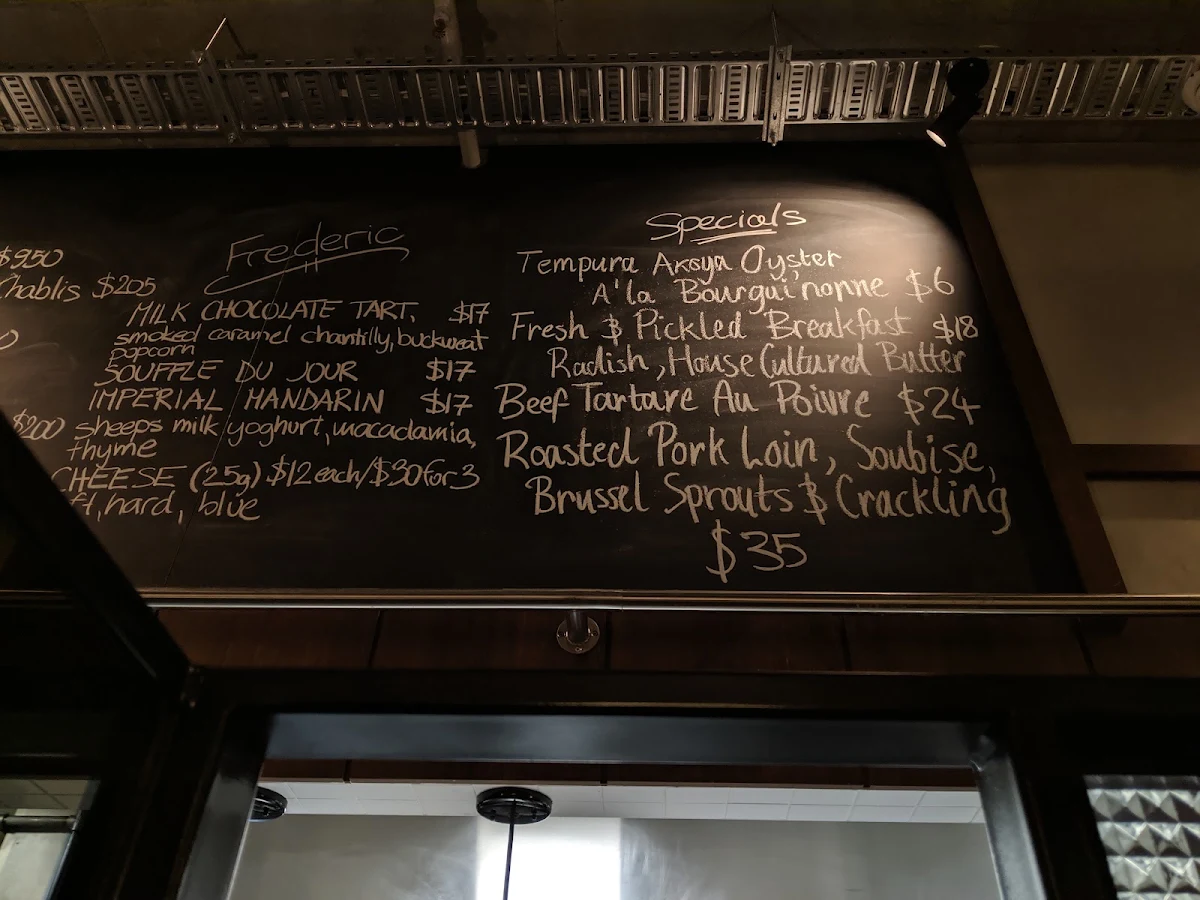 $950
Chablis $205
$200
Frederic
MILK CHOCOLATE TART. $17
smoked caramel chantilly, buckweat
popcorn
SOUFFLE DU JOUR $17
IMPERIAL MANDARIN $17
sheeps milk yoghurt, macadamia,
thyme
CHEESE (25g) $12 each/$30 for 3
ft, hard, blue
Specials
Tempura Akoya Oyster
A'la Bourguinonne $6
Fresh & Pickled Breakfast $18
Radish, House Cultured Butter
Beef Tartare Au Poivre $24
Roasted Pork Loin, Soubise,
Brussel Sprouts & Crackling
$35